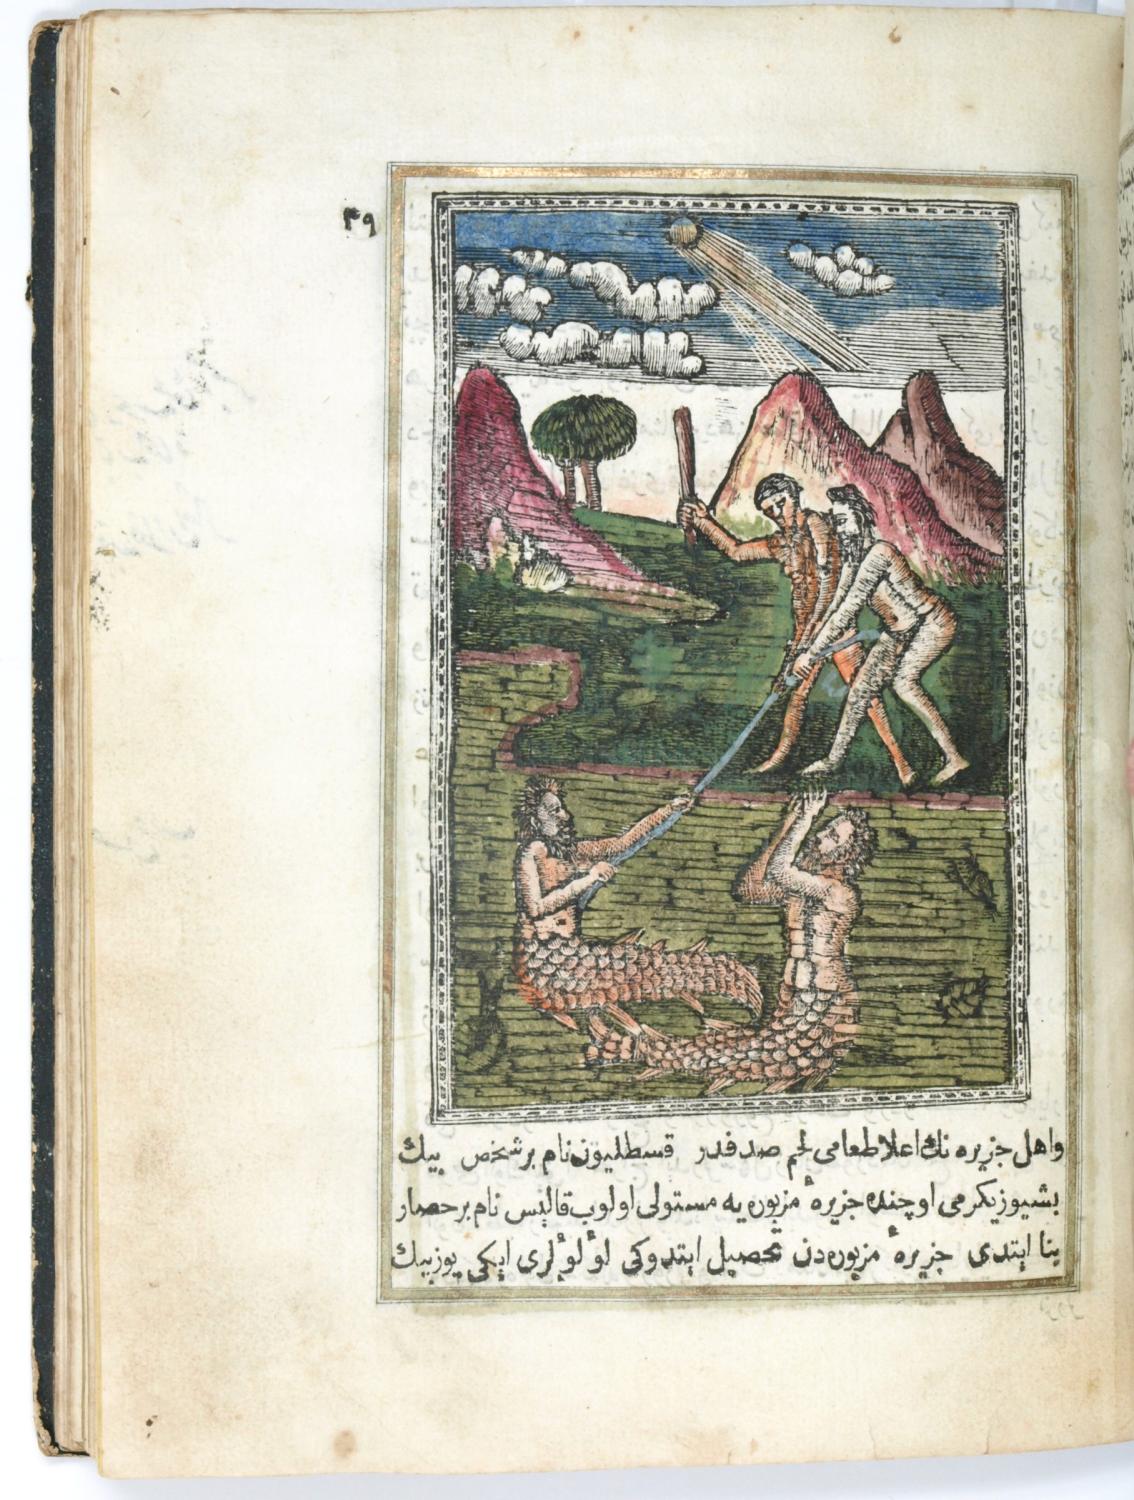 ٣٩
واهل جزيره نك اعلا طعامى لحم صدفدر قسطليون نام بر شخص بيك
بشيوز يكرمى اوچنده جزيرۀ مزبوره يه مستولى اولوب قالنس نام بر حصار
بنا ايتدى جزيرۀ مزبوره دن تحصيل ايتدوكى لؤلؤلرى ايكى يوز بيك